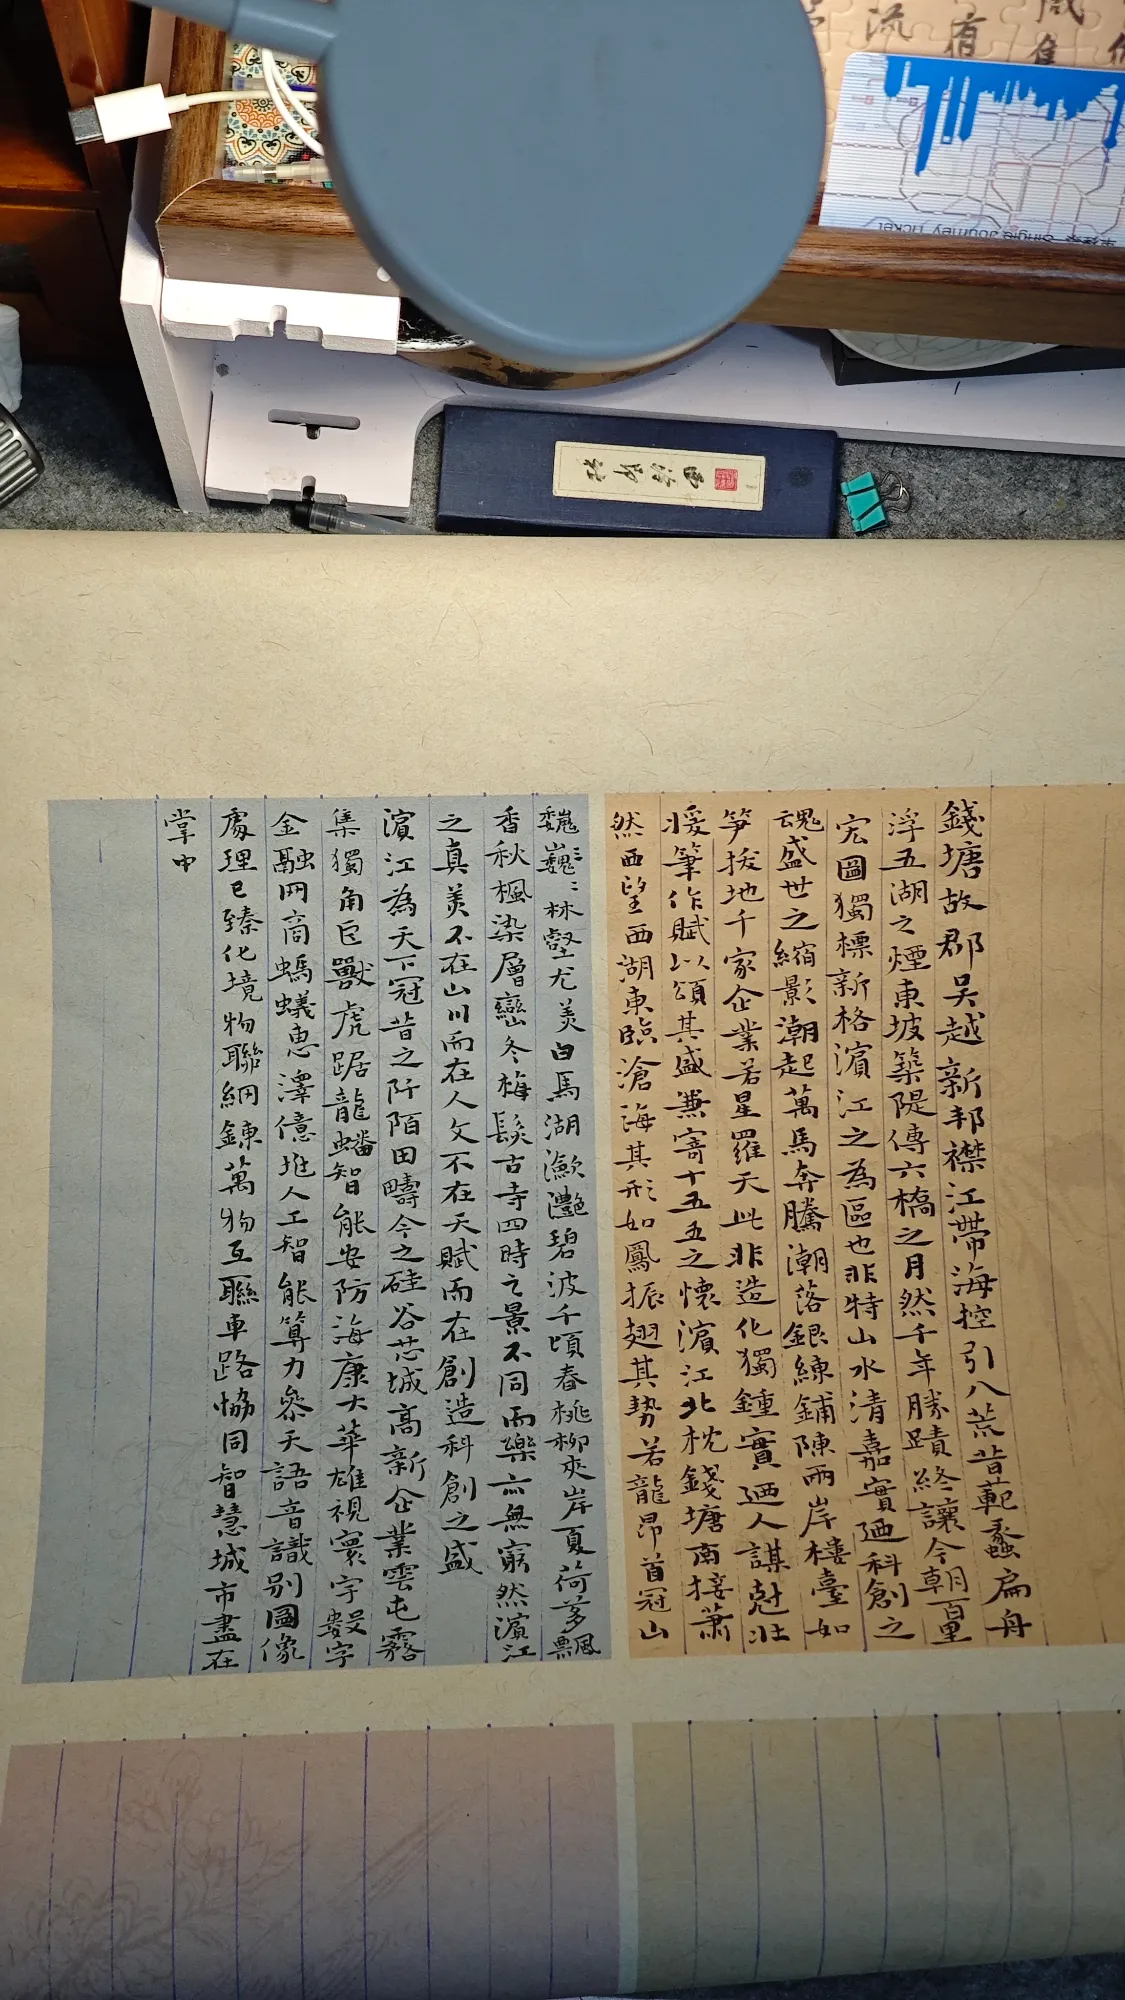 流
有
Single Journey Ticket
錢塘故郡吳越新邦襟江帶海控引八荒昔範蠡扁舟
浮五湖之煙東坡築隄傳六橋之月然千年勝蹟終讓今朝百里
宏圖獨標新格濱江之為區也非特山水清嘉實迺科創之
魂盛世之縮影潮起萬馬奔騰潮落銀練鋪陳兩岸樓臺如
筍拔地千家企業若星羅天此非造化獨鍾實迺人謀尅壯
援筆作賦以頌其盛兼寄十五五之懷濱江北枕錢塘南接蕭
然西望西湖東臨滄海其形如鳳振翅其勢若龍昂首冠山
巍巍林壑尤美白馬湖瀲灩碧波千頃春桃柳夾岸夏荷芰飄
香秋楓染層巒冬梅鬆古寺四時之景不同而樂亦無窮然濱江
之真美不在山川而在人文不在天賦而在創造科創之盛
濱江為天下冠昔之阡陌田疇今之硅谷芯城高新企業雲屯霧
集獨角巨獸虎踞龍蟠智能安防海康大華雄視寰宇數字
金融网商螞蟻惠澤億兆人工智能算力參天語音識別圖像
處理已臻化境物聯網鍊萬物互聯車路協同智慧城市盡在
掌中